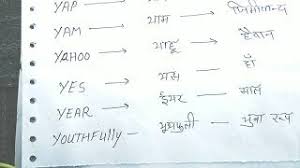 YAP → याप →
YAM → याम →
YAHOO → याहू → हैवान
YES → यस — हाँ
YEAR → ईयर — साल
YOUTHFULLY — यूथफुली — युवा रूप